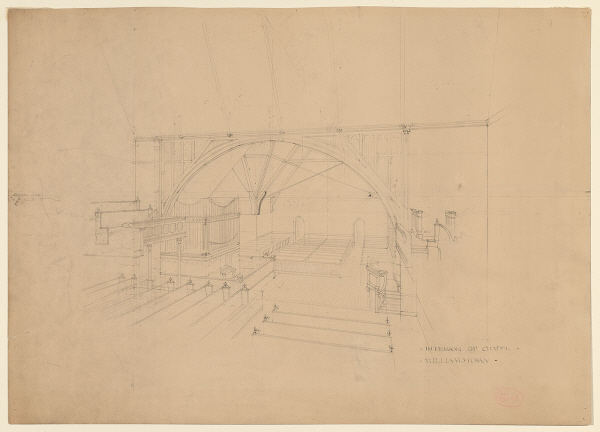 · INTERIOR OF CHAPEL ·
· WILLIAMSTOWN ·